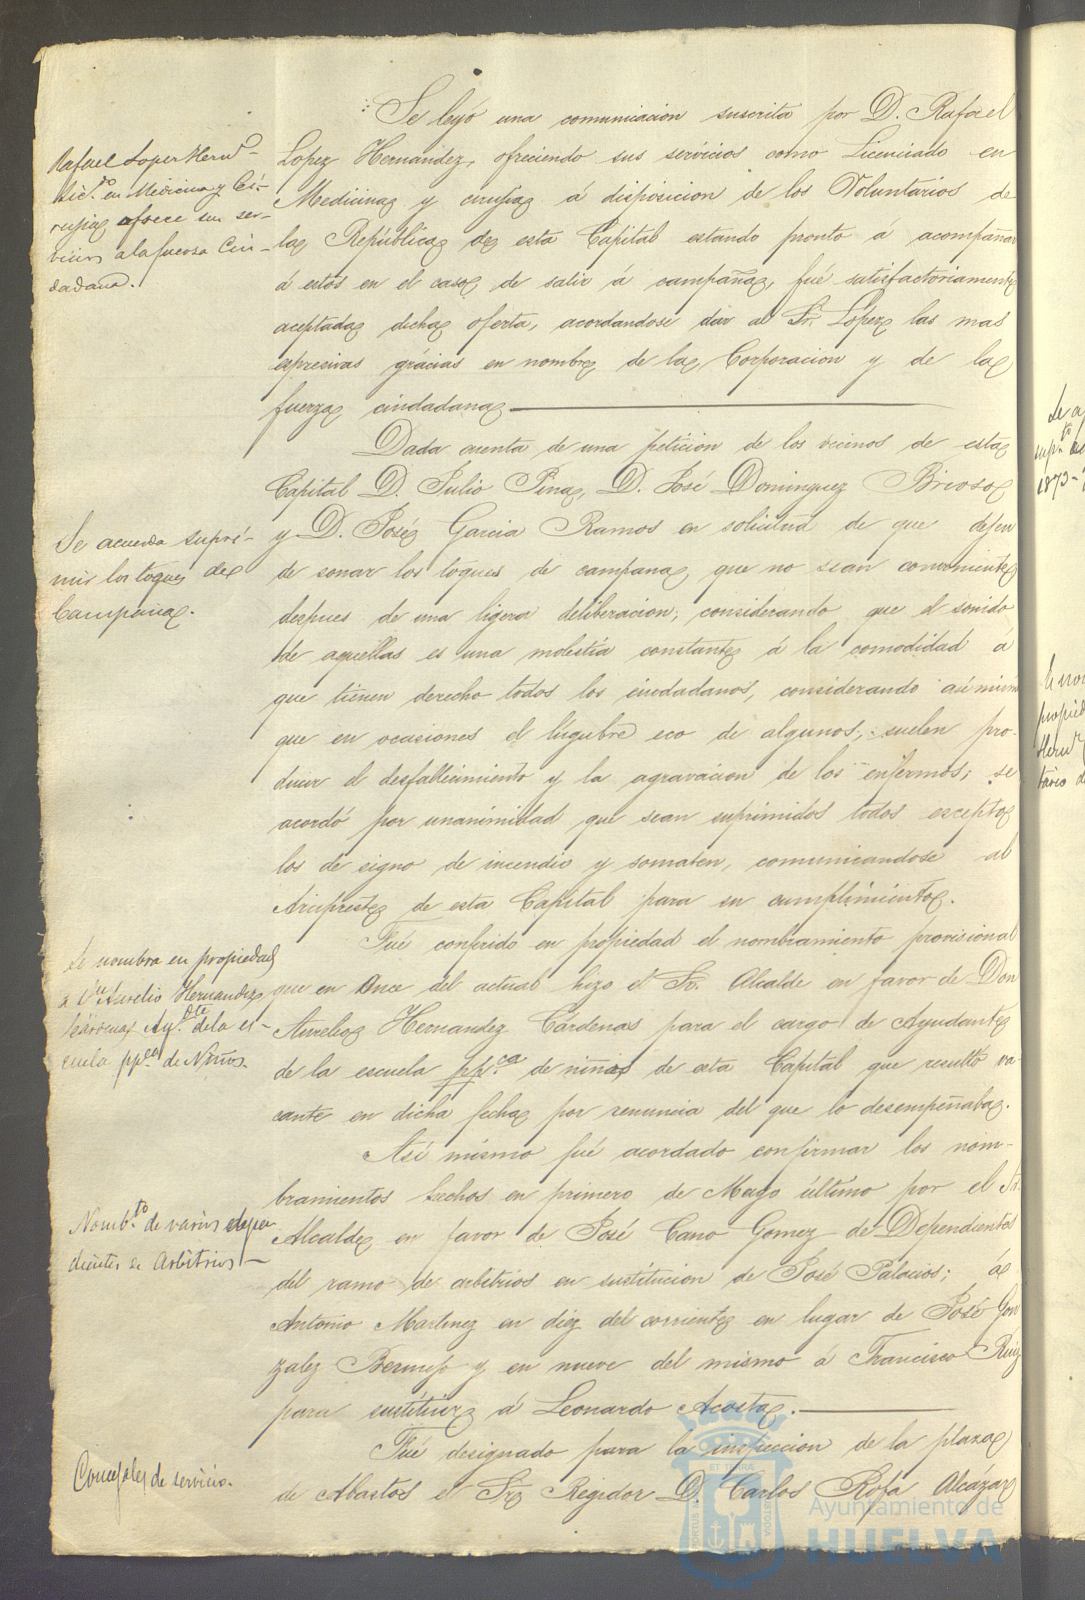 Se leyó una comunicacion suscrita por D. Rafael
Lopez Hernandez, ofreciendo sus servicios como Licenciado en
Medicina y cirujia á disposicion de los Voluntarios de
la República de esta Capital estando pronto á acompañar
á estos en el caso de salir á campaña, fué satisfactoriamente
aceptada dicha oferta, acordandose dar al Sr. Lópes las mas
espresivas grácias en nombre de la Corporacion y de la
fuerza ciudadana
Rafael Lopez Hern.
Lic.do en Medicina y Ci-
rujia ofrece sus ser-
vicios a la fuerza Ciu-
dadana.
Dada cuenta de una peticion de los vecinos de esta
Capital D. Julio Pina, D. José Dominguez Brioso
y D. José Garcia Ramos en solicitud de que dejen
de sonar los toques de campana, que no sean convenientes
despues de una ligera deliberacion, considerando que el sonido
de aquellas es una molestia constante á la comodidad á
que tienen derecho todos los ciudadanos, considerando asimismo
que en ocasiones el lúgubre eco de algunos, suelen pro-
ducir el desfallecimiento y la agravacion de los enfermos; se
acordó por unanimidad que sean suprimidos todos escepto
los de signo de incendio y somaten, comunicandose al
Arcipreste de esta Capital para su cumplimiento.
Se acuerda supri-
mir los toques de
Campana.
Fué conferido en propiedad el nombramiento provisional
que en once del actual hizo el Sr. Alcalde en favor de Don
Aurelio Hernandez Cárdenas para el cargo de Ayudante
de la escuela pp.ca de niños de esta Capital que resultó va-
cante en dicha fecha por renuncia del que lo desempeñaba.
Se nombra en propiedad
a Dn Aurelio Hernandez
Cárdenas Ay.dte de la es-
cuela pp.ca de Niños.
Asi mismo fué acordado confirmar los nom-
bramientos hechos en primero de Mayo último por el Sr.
Alcalde en favor de José Cano Gomez de Dependientes
del ramo de arbitrios en sustitucion de José Palacios; á
Antonio Martinez en diez del corriente en lugar de José Gon
zalez Bermejo y en nueve del mismo á Francisco Ruiz
para sustituir á Leonardo Acosta.
Nomb.to de varios depen
dientes de Arbitrios
Fué designado para la inspeccion de la plaza
de Abastos el Sr Regidor D. Carlos Rofa Alcázar
Concejales de servicio.
Ayuntamiento de
HUELVA